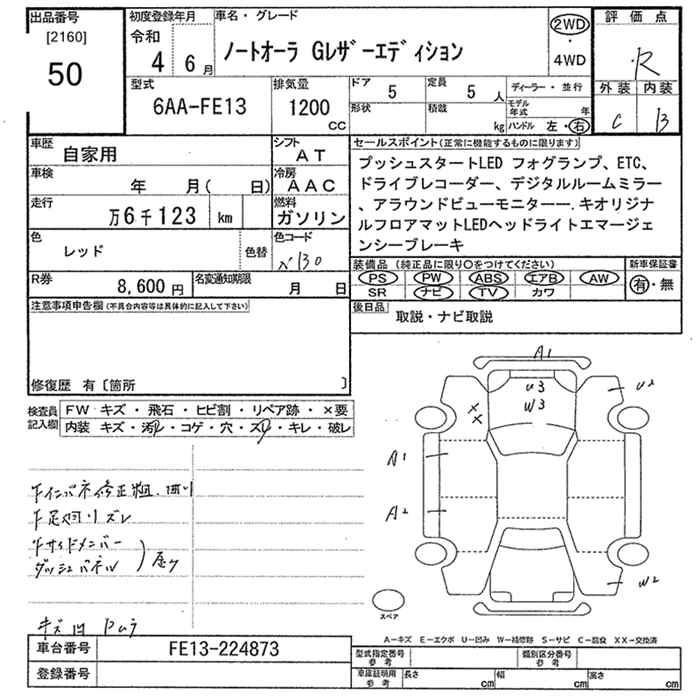 出品番号
[2160]
50
初度登録年月
令和
4 6月
車名・グレード
ノートオーラ Gレザーエディション
2WD
・
4WD
評価点
R
外装 内装
C B
型式
6AA-FE13
排気量
1200
CC
ドア 5
定員 5 人
形状
積載 kg
ディーラー・並行
モデル年式 年
ハンドル 左・右
車歴
自家用
シフト
AT
車検
年 月( 日)
冷房
AAC
走行
万6千123 km
燃料
ガソリン
色
レッド
色替
色コード
R券
8,600円
名変通知期限
月 日
セールスポイント(正常に機能するものに限ります)
プッシュスタートLED フォグランプ、ETC、
ドライブレコーダー、デジタルルームミラー
、アラウンドビューモニター一. キオリジナ
ルフロアマットLEDヘッドライトエマージェ
ンシーブレーキ
装備品 (純正品に限り〇をつけてください)
PS PW ABS エアB AW
SR ナビ TV カワ
新車保証書
有・無
後日品
取説・ナビ取説
注意事項申告欄(不具合内容等は具体的に記入して下さい)
修復歴 有〔箇所 〕
検査員
記入欄
FW キズ・飛石・ヒビ割・リペア跡・×要
内装 キズ・汚レ・コゲ・穴・スレ・キレ・破レ
A1
U3
W3
U2
XX
A1
A2
W2
スペア
Fインパネ修正粗.曲り
F足回りズレ
Fサイドメンバー
ダッシュパネル
A−キズ E−エクボ U−凹み W−補修跡 S−サビ C−腐食 XX−交換済
車台番号
FE13-224873
登録番号
型式指定番号
参考
類別区分番号
参考
車庫証明用
参考
長さ cm
幅 cm
高さ cm